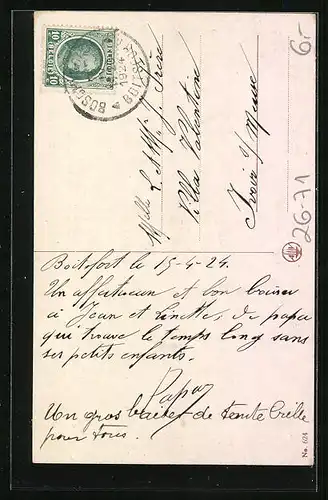 6-
26-71
BELGIQUE 10
BOSCH
1924
Melle L et M J. Frère
Villa Valentine
Yvoir s/ Meuse
Boitsfort le 15-4-24.
Un affectueux et bon baiser
à Jean et Ginette, de papa
qui trouve le temps long sans
ses petits enfants.
Papa
Un gros baiser de tante
pour tous.
No. 624